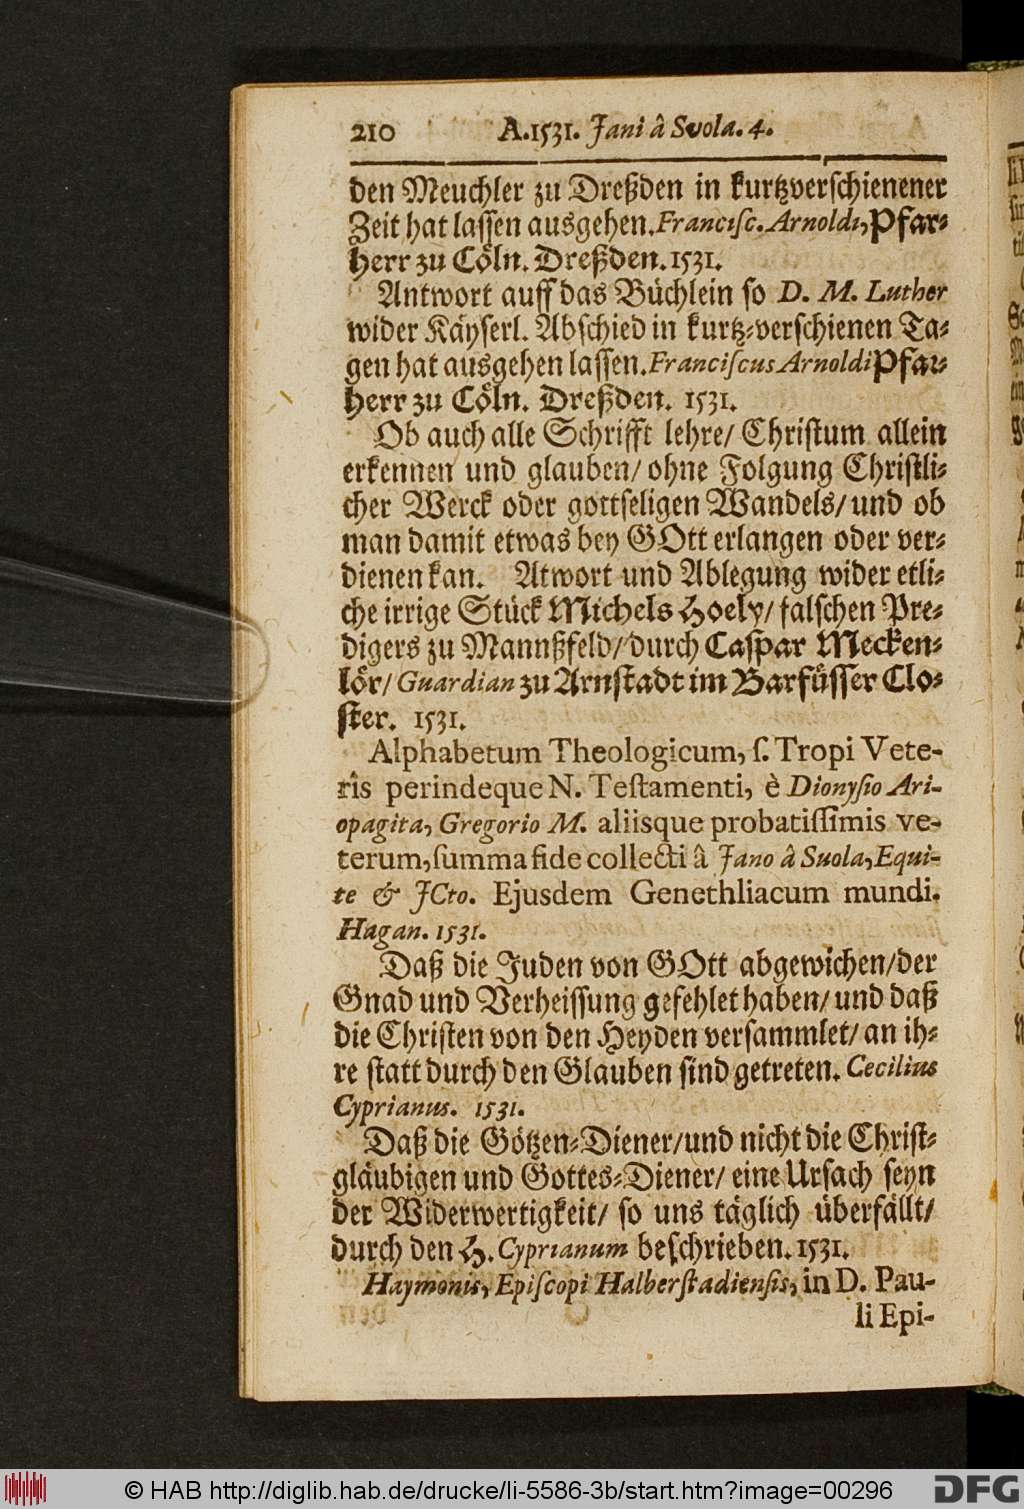 210 A. 1531. Jani â Svola. 4.
den Meuchler zu Dreßden in kurtzverschienener
Zeit hat lassen ausgehen. Franciſc. Arnoldi, Pfar-
herr zu Cöln. Dreßden. 1531.
Antwort auff das Büchlein so D. M. Luther
wider Käyserl. Abschied in kurtz-verschienen Ta-
gen hat ausgehen lassen. Franciſcus Arnoldi Pfar-
herr zu Cöln. Dreßden. 1531.
Ob auch alle Schrifft lehre/ Christum allein
erkennen und glauben/ ohne Folgung Christli-
cher Werck oder gottseligen Wandels/ und ob
man damit etwas bey GOtt erlangen oder ver-
dienen kan. Atwort und Ablegung wider etli-
che irrige Stück Michels Hoely/ falschen Pre-
digers zu Mannßfeld/ durch Caspar Mecken-
lör/ Guardian zu Arnstadt im Barfüsser Clo-
ster. 1531.
Alphabetum Theologicum, ſ. Tropi Vete-
rîs perindeque N. Teſtamenti, è Dionyſio Ari-
opagita, Gregorio M. aliisque probatiſſimis ve-
terum, ſumma fide collecti â Jano â Suola, Equi-
te & JCto. Ejusdem Genethliacum mundi.
Hagan. 1531.
Daß die Juden von GOtt abgewichen/ der
Gnad und Verheissung gefehlet haben/ und daß
die Christen von den Heyden versammlet/ an ih-
re statt durch den Glauben sind getreten. Cecilius
Cyprianus. 1531.
Daß die Götzen-Diener/ und nicht die Christ-
gläubigen und Gottes-Diener/ eine Ursach seyn
der Widerwertigkeit/ so uns täglich überfällt/
durch den H. Cyprianum beschrieben. 1531.
Haymonis, Epiſcopi Halberſtadienſis, in D. Pau-
li Epi-
© HAB http://diglib.hab.de/drucke/li-5586-3b/start.htm?image=00296
DFG